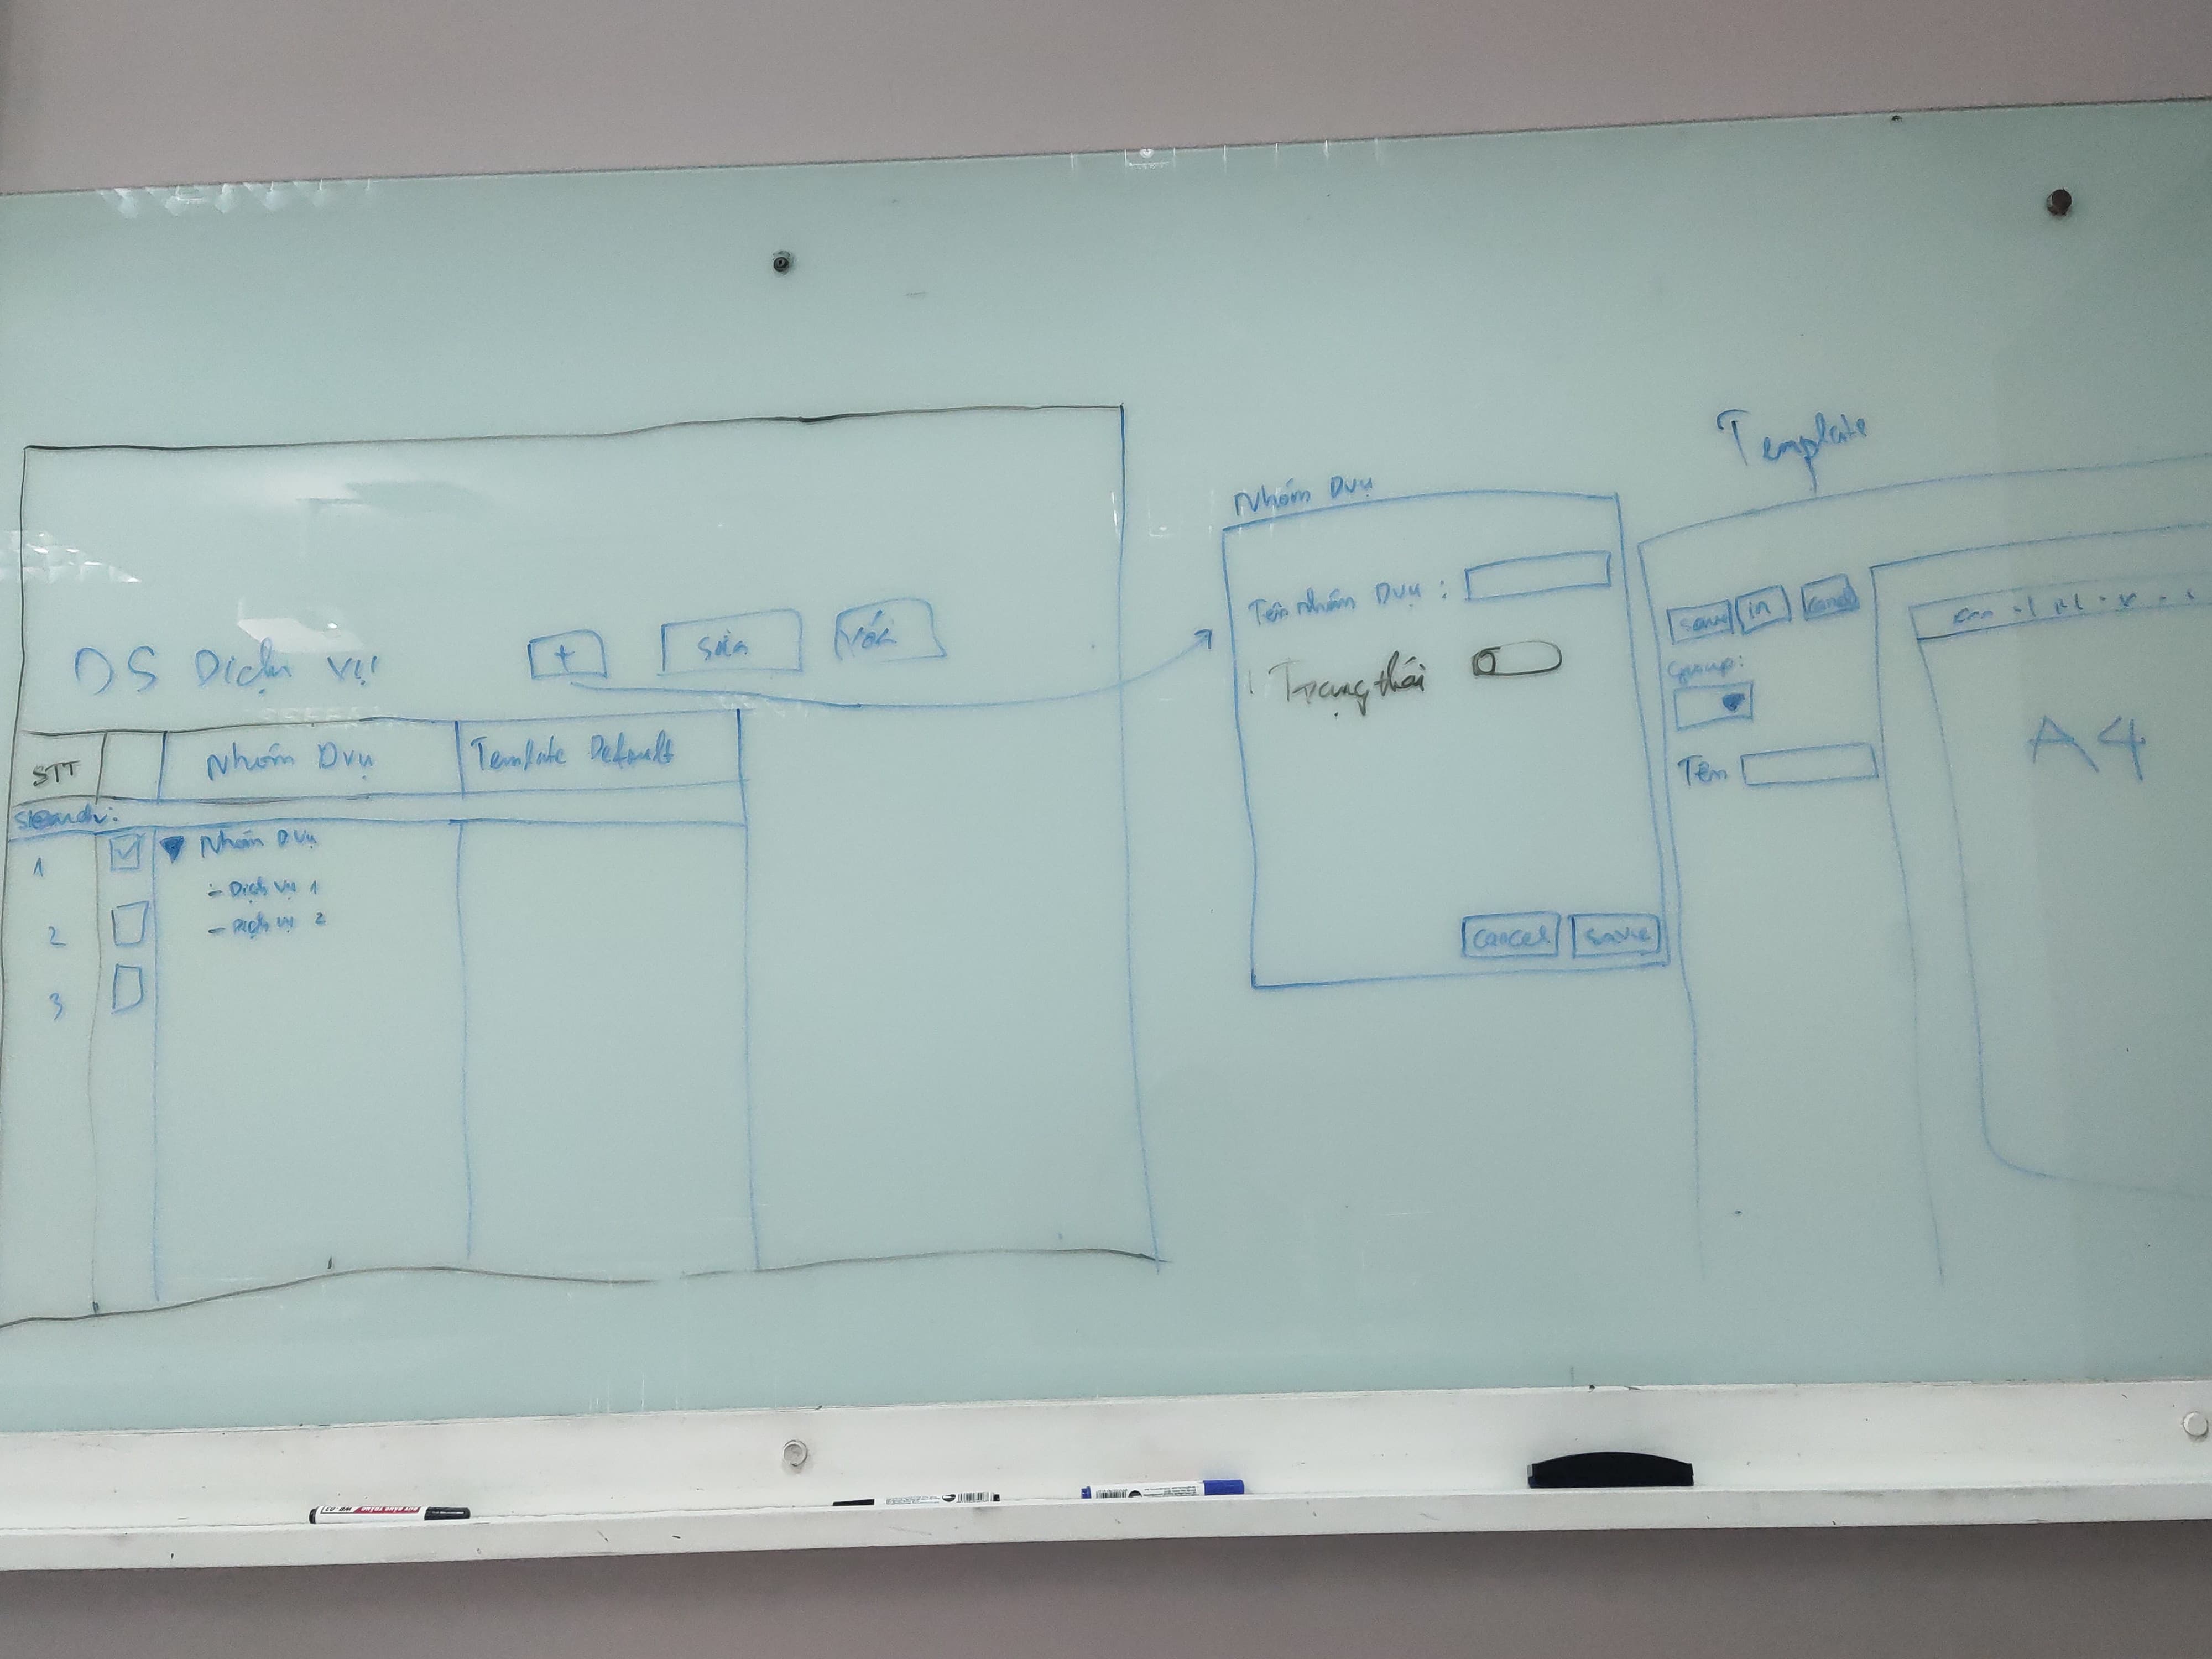 DS Dịch vụ
+
Sửa
Xóa
STT
Nhóm Dvụ
Template Default
Search:
1
Nhóm Dvụ
- Dịch vụ 1
2
- Dịch vụ 2
3
Nhóm Dvụ
Tên nhóm Dvụ :
Trạng thái
cancel
save
Template
save
in
Group:
Tên
A4